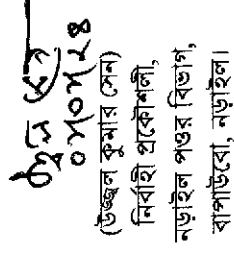 ০৭০৭২৪
(উজ্জ্বল কুমার সেন)
নির্বাহী প্রকৌশলী,
নড়াইল পওর বিভাগ,
বাপাউবো, নড়াইল।